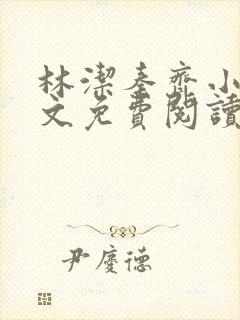 林潔秦齊小
文免費閱讀
尹慶德